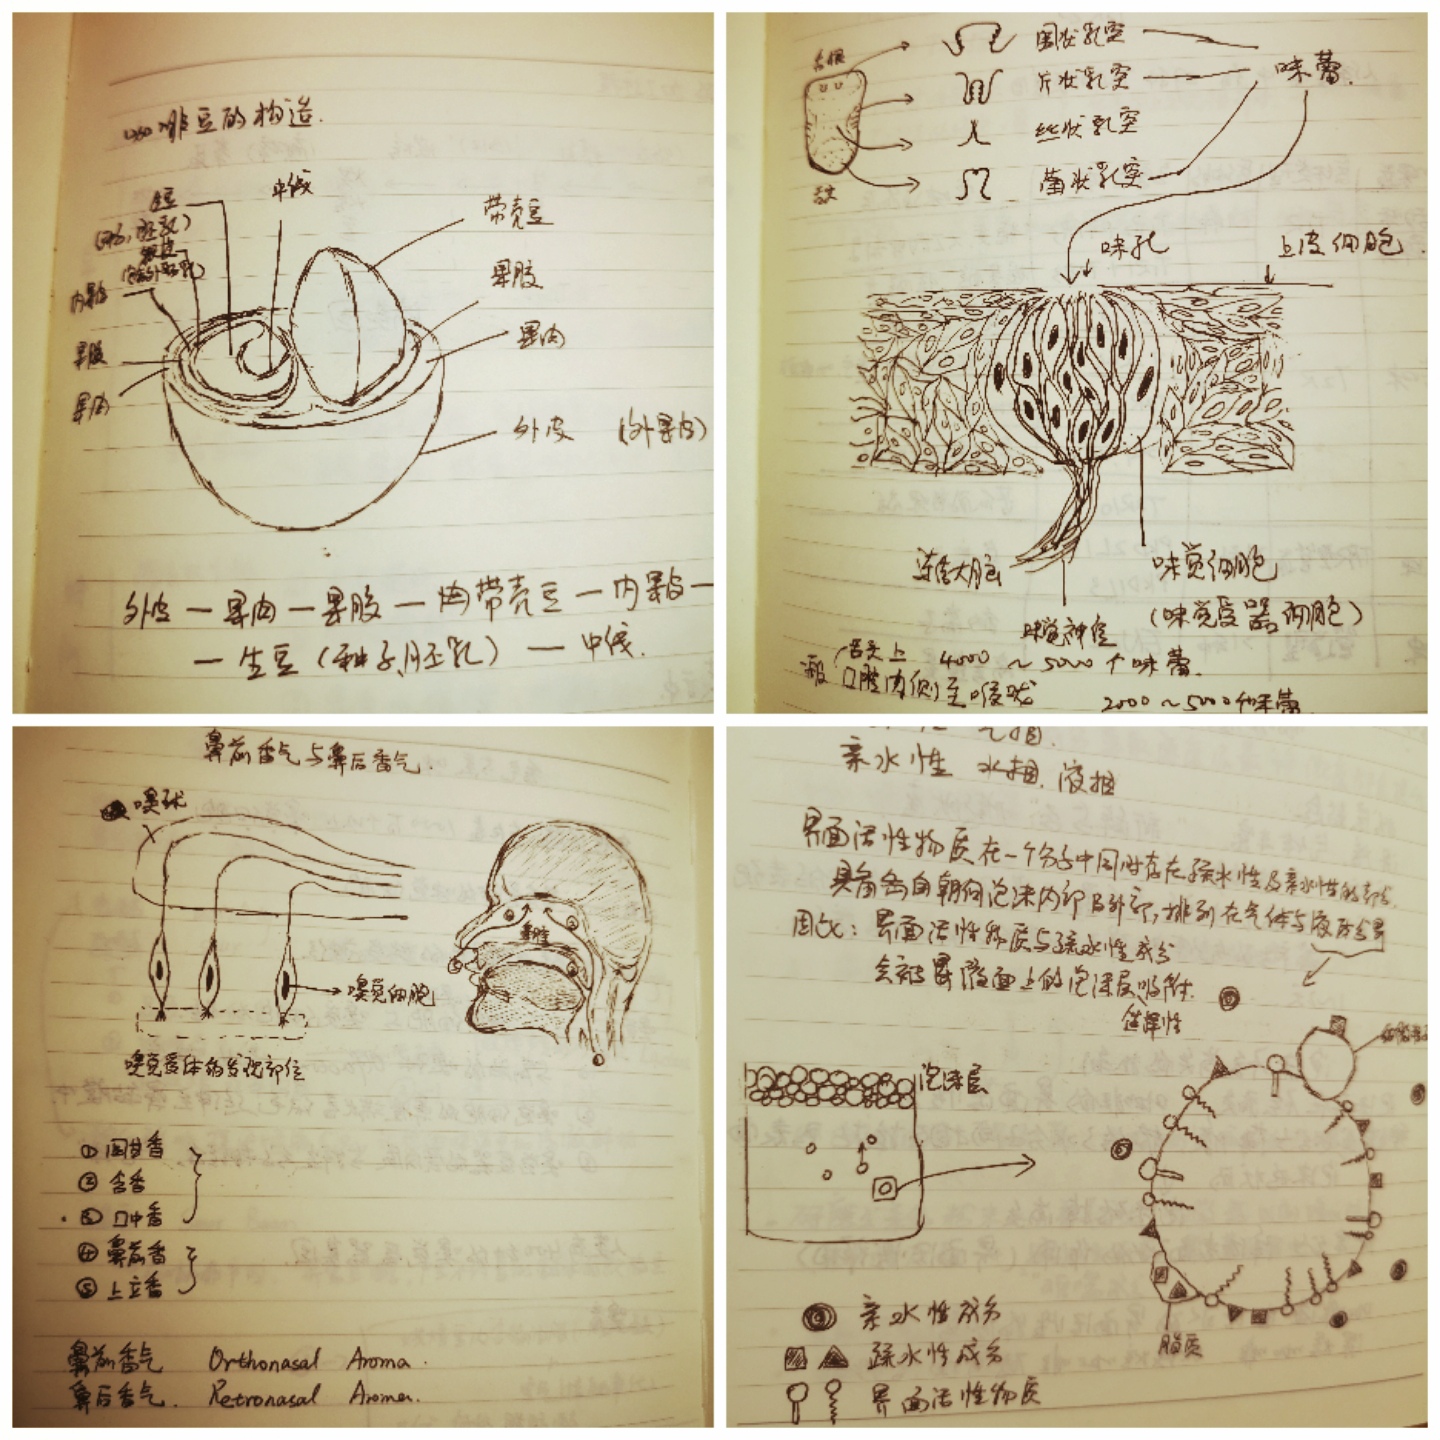 咖啡豆的构造.
生豆
中线
(种子,胚乳)
银皮
内果皮
果胶
果肉
带壳豆
果胶
果肉
外皮 (外果皮)
外皮 — 果肉 — 果胶 — 肉带壳豆 — 内果皮 —
— 生豆 (种子,胚乳) — 中线.
舌根
舌尖
围状乳突
片状乳突
丝状乳突
菌状乳突
味蕾.
味孔
上皮细胞.
连结大脑
味觉神经
味觉细胞
(味觉受器细胞)
一般
舌头上 4000 ~ 5000 个味蕾.
口腔内侧至喉咙 2000 ~ 5000个味蕾.
鼻前香气与鼻后香气.
嗅球
鼻腔
嗅觉细胞
嗅觉受体的发现部位
① 回甘香
② 含香
③ 口中香
④ 鼻前香
⑤ 上立香
鼻前香气 Orthonasal Aroma.
鼻后香气. Retronasal Aroma.
气相.
亲水性 水相. 液相
界面活性物质在一个分子中同时存在疏水性及亲水性的部分.
具备各自朝向泡沫内部及外部,排列在气体与液体分界
因此: 界面活性物质与疏水性成分
会被液面上的泡沫层吸附.
选择性
泡沫层
脂质
亲水性成分
疏水性成分
界面活性物质